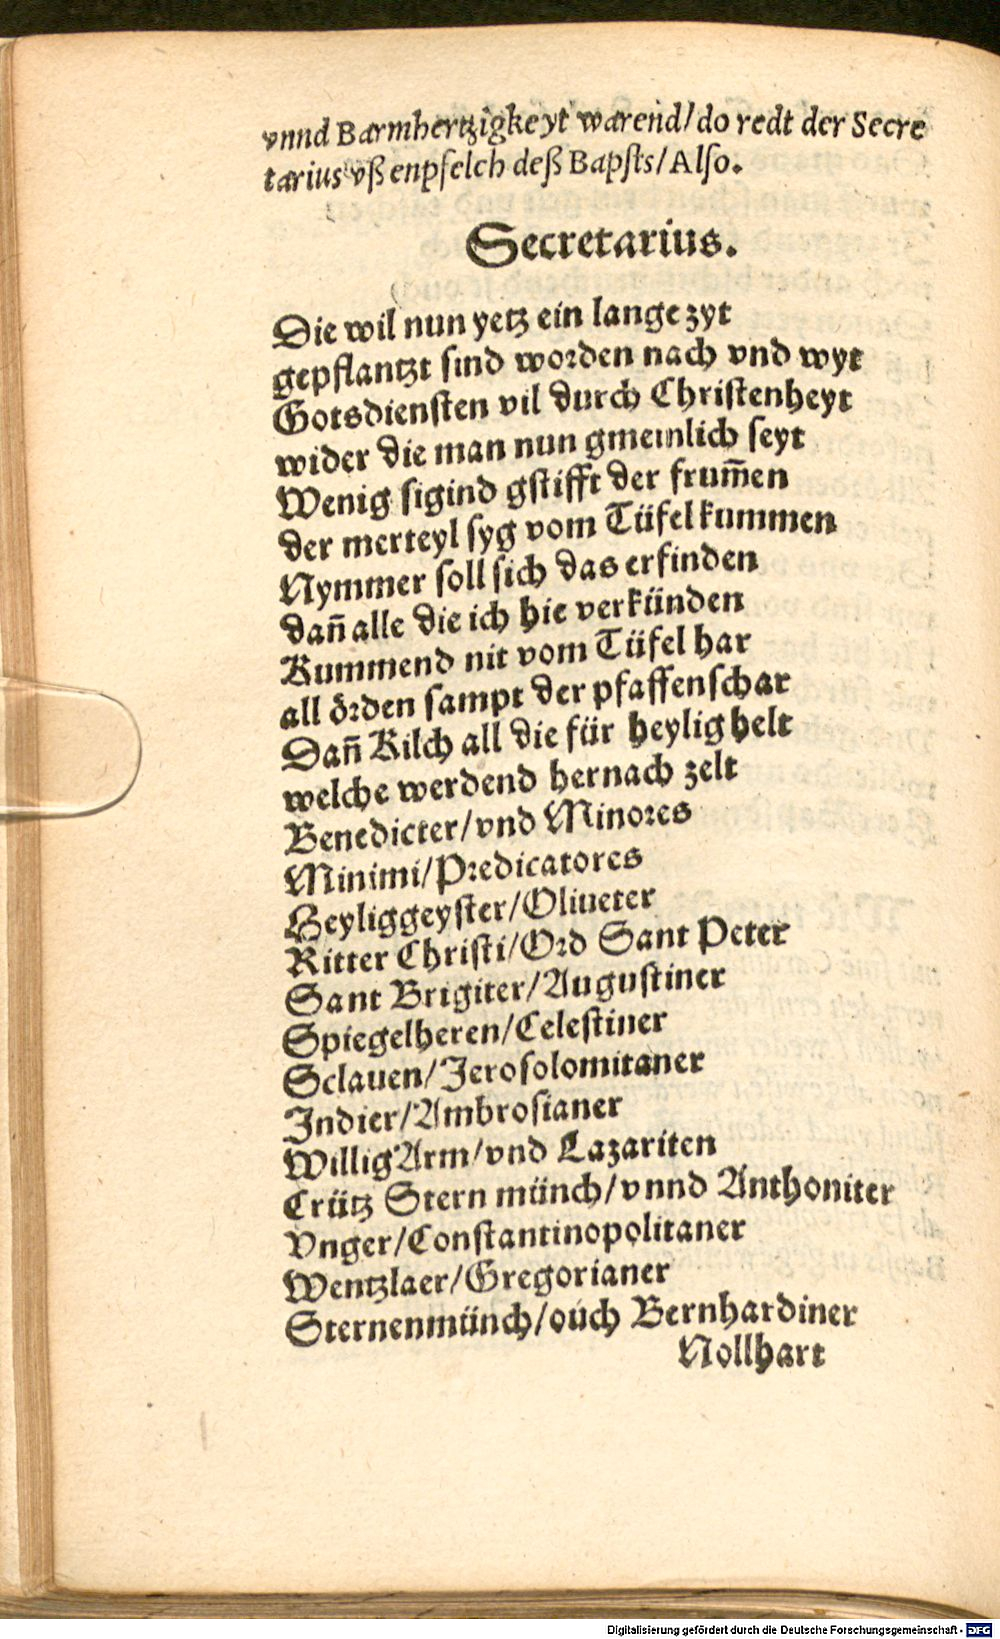 vnnd Barmhertzigkeyt warend/do redt der Secre
tarius vß enpfelch deß Bapsts/Also.
Secretarius.
Die wil nun yetz ein lange zyt
gepflantzt sind worden nach vnd wyt
Gotsdiensten vil durch Christenheyt
wider die man nun gmeinlich seyt
Wenig sigind gstifft der frum̃en
der merteyl syg vom Tüfel kummen
Nymmer soll sich das erfinden
dañ alle die ich hie verkünden
Kummend nit vom Tüfel har
all örden sampt der pfaffenschar
Dañ Kilch all die für heylig helt
welche werdend hernach zelt
Benedicter/vnd Minores
Minimi/Predicatores
Heyliggeyster/Oliueter
Ritter Christi/Ord Sant Peter
Sant Brigiter/Augustiner
Spiegelheren/Celestiner
Sclauen/Jerosolomitaner
Indier/Ambrosianer
Willig Arm/vnd Lazariten
Crütz Stern münch/vnnd Anthoniter
Vnger/Constantinopolitaner
Wentzlaer/Gregorianer
Sternenmünch/ouch Bernhardiner
Nollhart
Digitalisierung gefördert durch die Deutsche Forschungsgemeinschaft - DFG